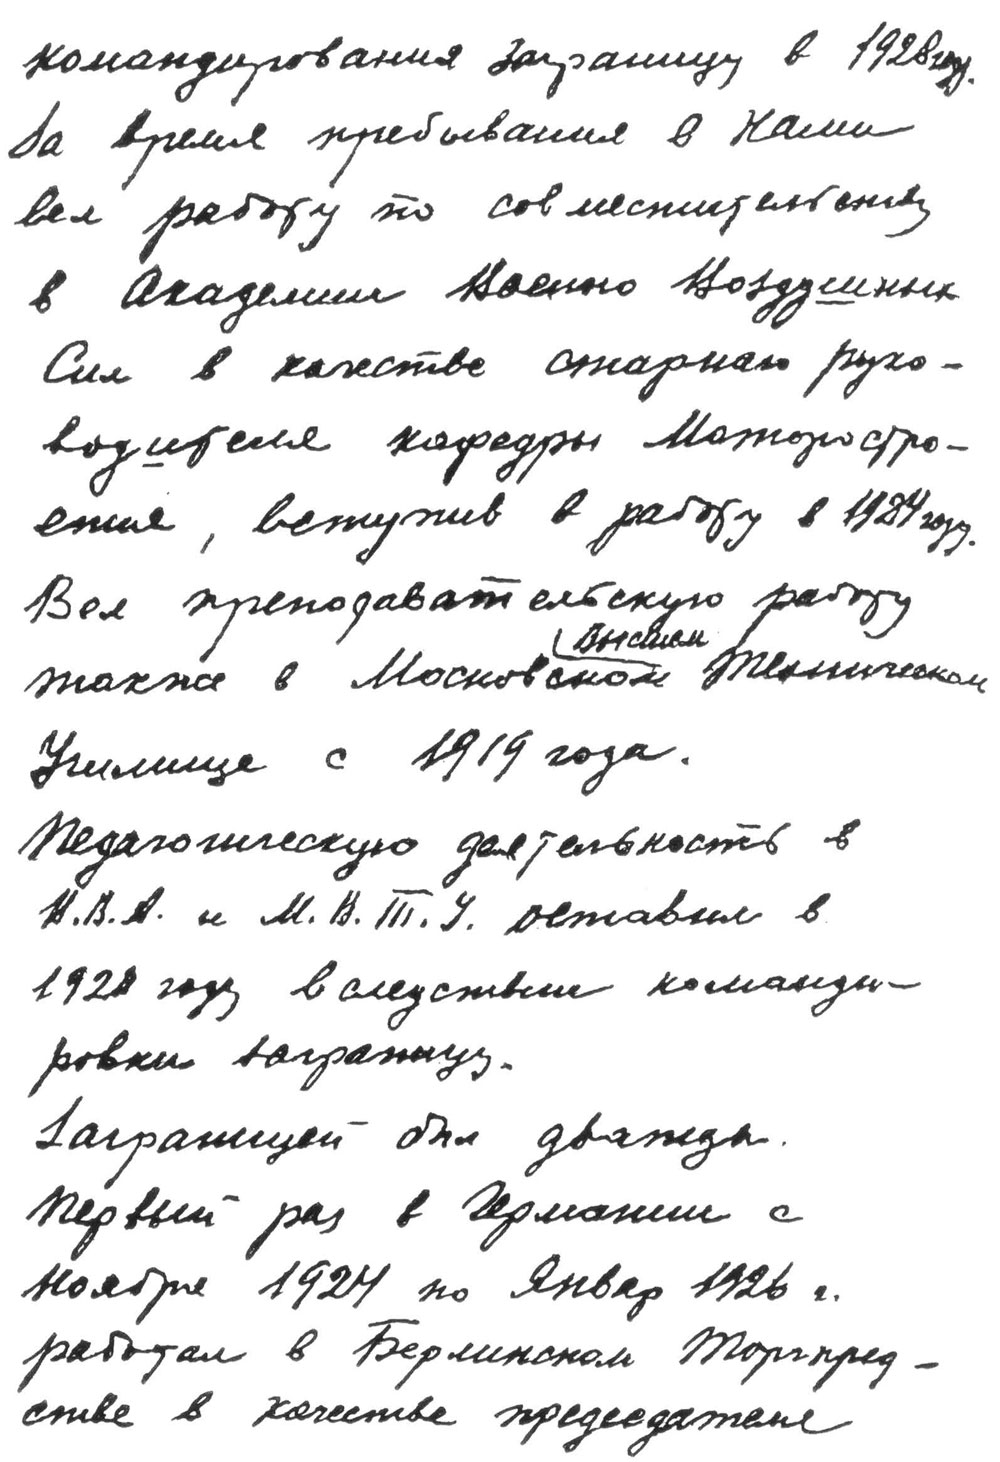 командирования заграницу в 1928 году.
За время пребывания в Нами
вел работу по совместительству
в Академии Военно Воздушных
Сил в качестве старшего руко-
водителя кафедры Моторостро-
ения, вступив в работу в 1924 году.
Вел преподавательскую работу
также в Московском Высшем Техническом
Училище с 1919 года.
Педагогическую деятельность в
В.В.А. и М.В.Т.У. оставил в
1928 году вследствии команди-
ровки заграницу.
Заграницей был дважды.
Первый раз в Германии с
Ноября 1924 по Январ 1926 г.
работал в Берлинском Торгпред-
стве в качестве председателя